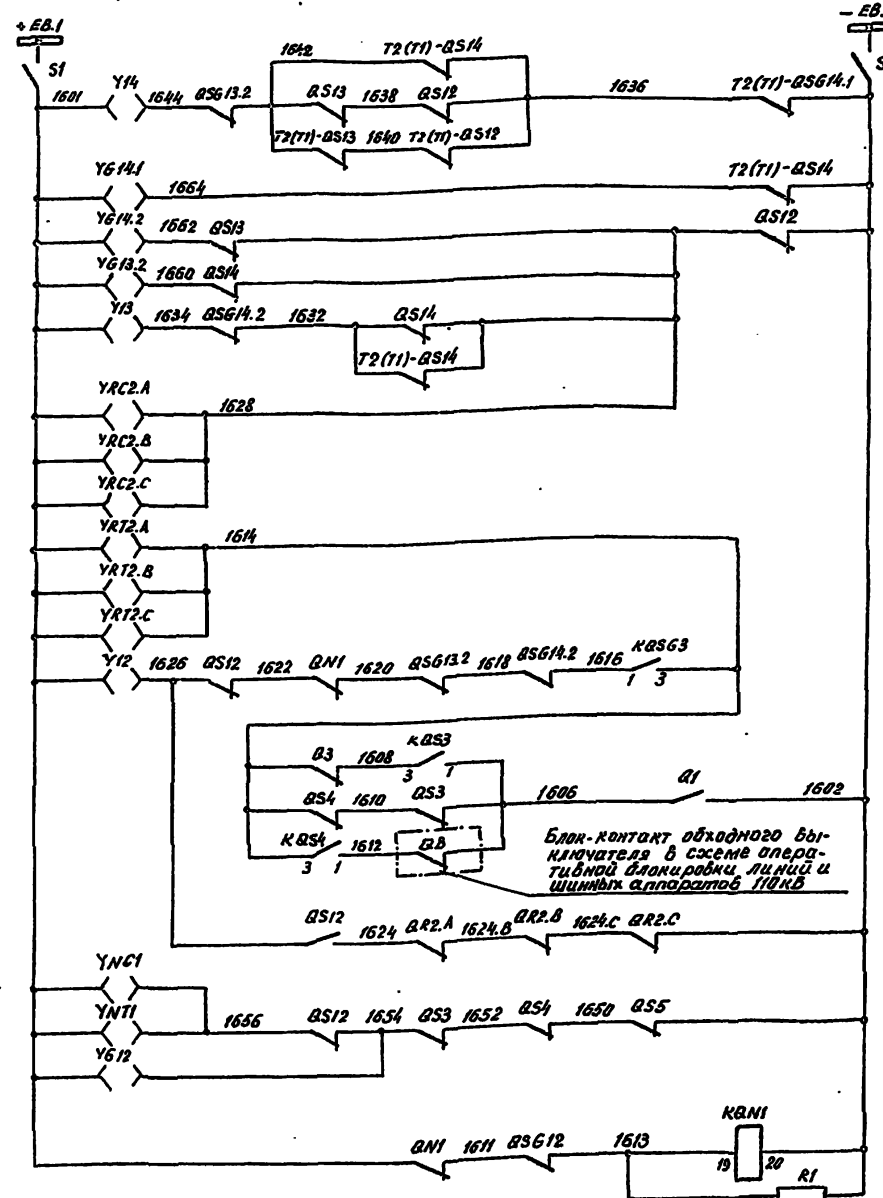 + EB.1
- EB.
S1
S
1601
Y14
1644
QSG13.2
1642
T2(T1)-QS14
QS13
1638
QS12
T2(T1)-QS13
1640
T2(T1)-QS12
1636
T2(T1)-QSG14.1
YG14.1
1664
T2(T1)-QS14
YG14.2
1662
QS13
QS12
YG13.2
1660
QS14
Y13
1634
QSG14.2
1632
QS14
T2(T1)-QS14
YRC2.A
1628
YRC2.B
YRC2.C
YRT2.A
1614
YRT2.B
YRT2.C
Y12
1626
QS12
1622
QN1
1620
QSG13.2
1618
QSG14.2
1616
KQSG3
1 3
Q3
1608
KQS3
3 1
QS4
1610
QS3
1606
Q1
1602
KQS4
3 1
1612
QB
Блок-контакт обходного вы-
ключателя в схеме опера-
тивной блокировки линий и
шинных аппаратов 110кВ
QS12
1624
QR2.A
1624.B
QR2.B
1624.C
QR2.C
YNC1
YNT1
1656
QS12
1654
QS3
1652
QS4
1650
QS5
YG12
QN1
1611
QSG12
1613
KQN1
19 20
R1